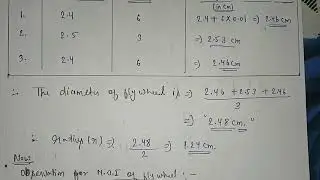 (in cm)
1. 2.4 6 2.4 + 6×0.01 => 2.46 cm
2. 2.5 3 => 2.53 cm
3. 2.4 6 => 2.46 cm
∴ The diameter of flywheel is => 2.46 + 2.53 + 2.46 / 3
=> "2.48 cm."
∴ radius (r) => 2.48 / 2 => 1.24 cm.
• Now
Observation for M.O.I of flywheel : —